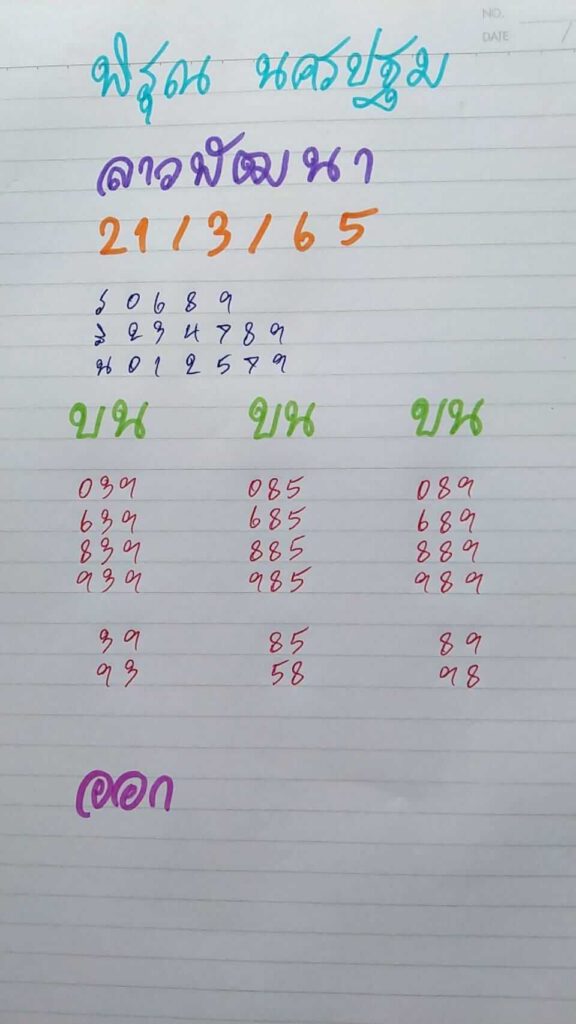 NO.
DATE /
พิรุณ นครปฐม
ลาวพัฒนา
21/3/65
ร 0 6 8 9
สิ 2 3 4 7 8 9
น 0 1 2 5 7 9
บน บน บน
039 085 089
639 685 689
839 885 889
939 985 989
39 85 89
93 58 98
ออก